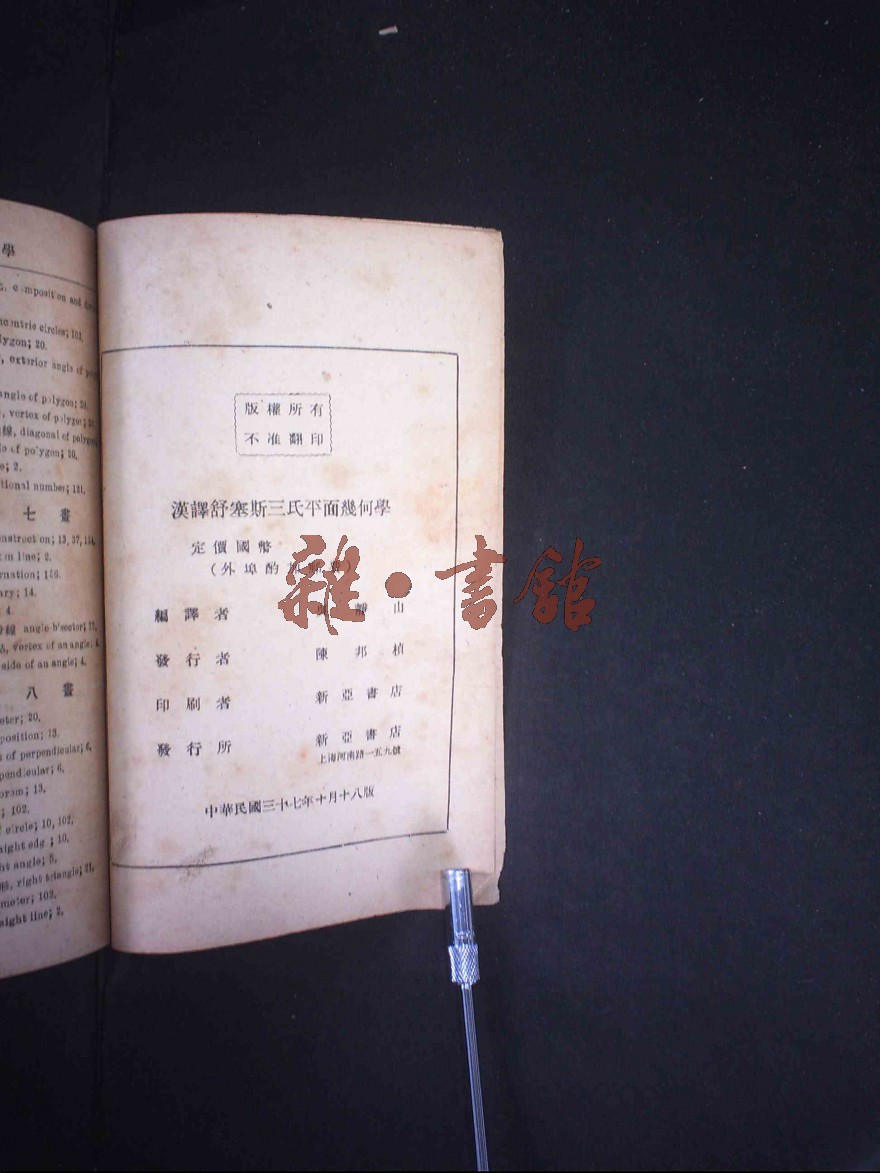 學
composition and
concentric circles; 102.
polygon; 20.
exterior angle of
angle of polygon; 20.
vertex of polygon; 20.
線, diagonal of polygon
of polygon; 20.
2.
number; 121.
七 畫
construction; 13, 37, 154.
line; 2.
14.
4.
分線 angle-bisector; 
vertex of an angle; 4.
side of an angle; 4.
八 畫
20.
position; 13.
of perpendicular; 6.
perpendicular; 6.
13.
; 102.
circle; 10, 102.
straight edge; 10.
right angle; 5.
right triangle; 21.
102.
straight line; 2.
版權所有
不准翻印
漢譯舒塞斯三氏平面幾何學
定價國幣
(外埠酌加
編譯者 山
發行者 陳邦楨
印刷者 新亞書店
發行所 新亞書店
上海河南路一五九號
中華民國三十七年十月十八版
雜·書館